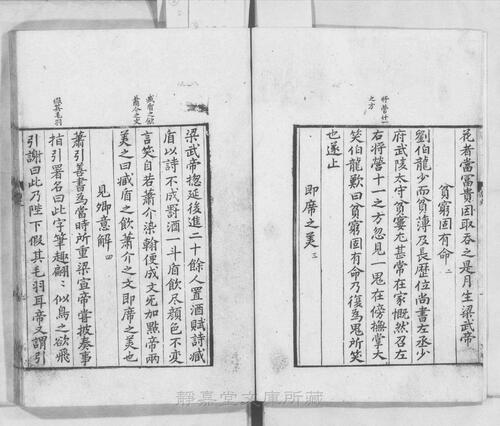 花者當冨貴因取吞之是月生梁武帝
貧窮固有命二
劉伯龍少而貧薄及長歴位尚書左丞少
府武陵太守貧窶尤甚常在家慨然召左
右將營十一之方忽見一鬼在傍撫掌大
笑伯龍歎曰貧窮固有命乃復為鬼所笑
也遂止
即席之美三
將營什一之方
臧盾之飲蕭介之文
梁武帝揔延後進二十餘人置酒賦詩臧
盾以詩不成罰酒一斗盾飲尽顔色不變
言笑自若蕭介染翰便成文无加㸃帝兩
美之曰臧盾之飲蕭介之文即席之美也
見卿意解四
假其毛羽
蕭引善書為當時所重梁宣帝甞披奏事
指引署名曰此字筆趣翩〻似鳥之欲飛
引謝曰此乃陛下假其毛羽耳帝又謂引
靜嘉堂文庫所藏